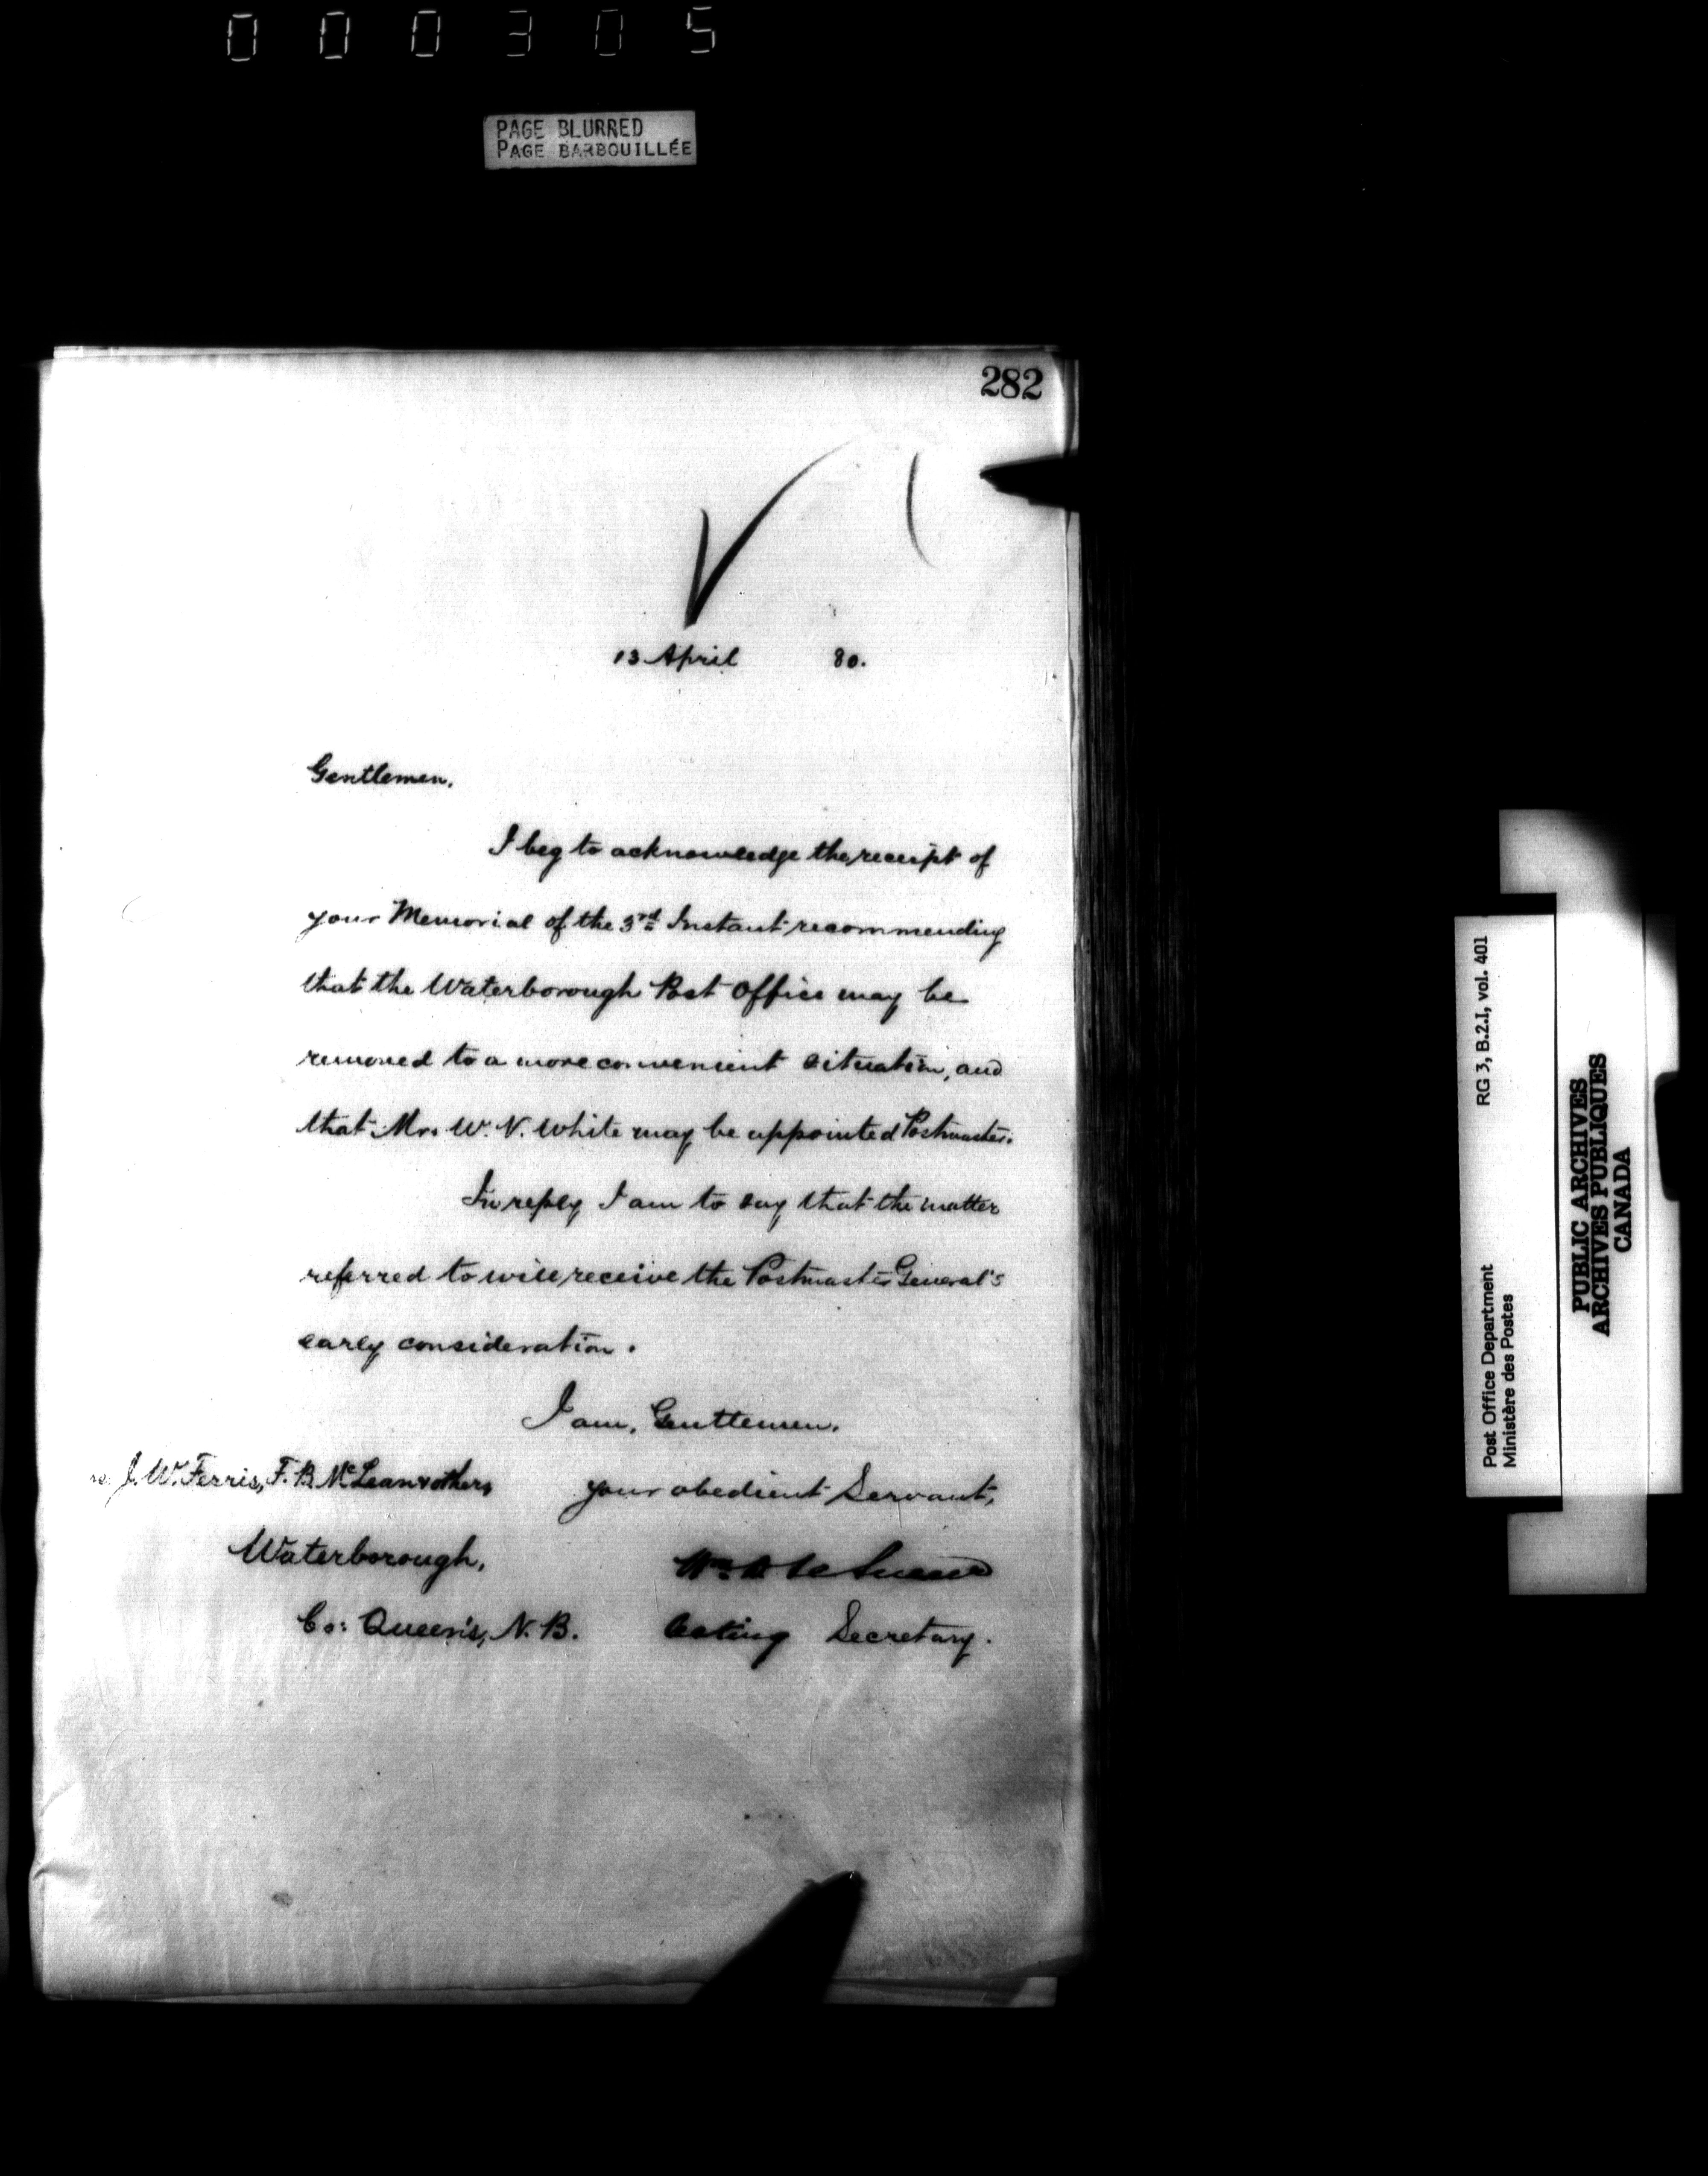 000305
PAGE BLURRED
PAGE BARBOUILLÉE
282
13 April 80.
Gentlemen,
I beg to acknowledge the receipt of
your Memorial of the 3rd Instant recommending
that the Waterborough Post Office may be
removed to a more convenient situation, and
that Mr. W. N. White may be appointed Postmaster.
In reply I am to say that the matter
referred to will receive the Postmaster General's
early consideration.
I am, Gentlemen,
J. W. Ferris, F. B. McLean & others,
your obedient Servant,
Waterborough,
Wm
Co: Queen's, N. B.
Acting Secretary.
RG 3, B.2.I, vol. 401
Post Office Department
Ministère des Postes
PUBLIC ARCHIVES
ARCHIVES PUBLIQUES
CANADA